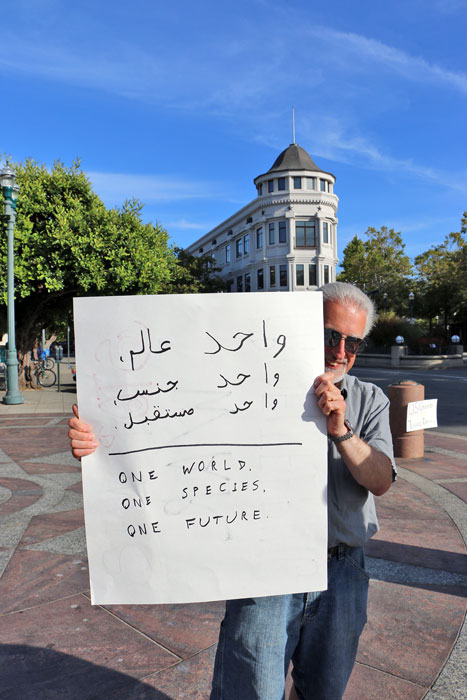 واحد عالم،
واحد جنس،
واحد مستقبل.
ONE WORLD.
ONE SPECIES.
ONE FUTURE.